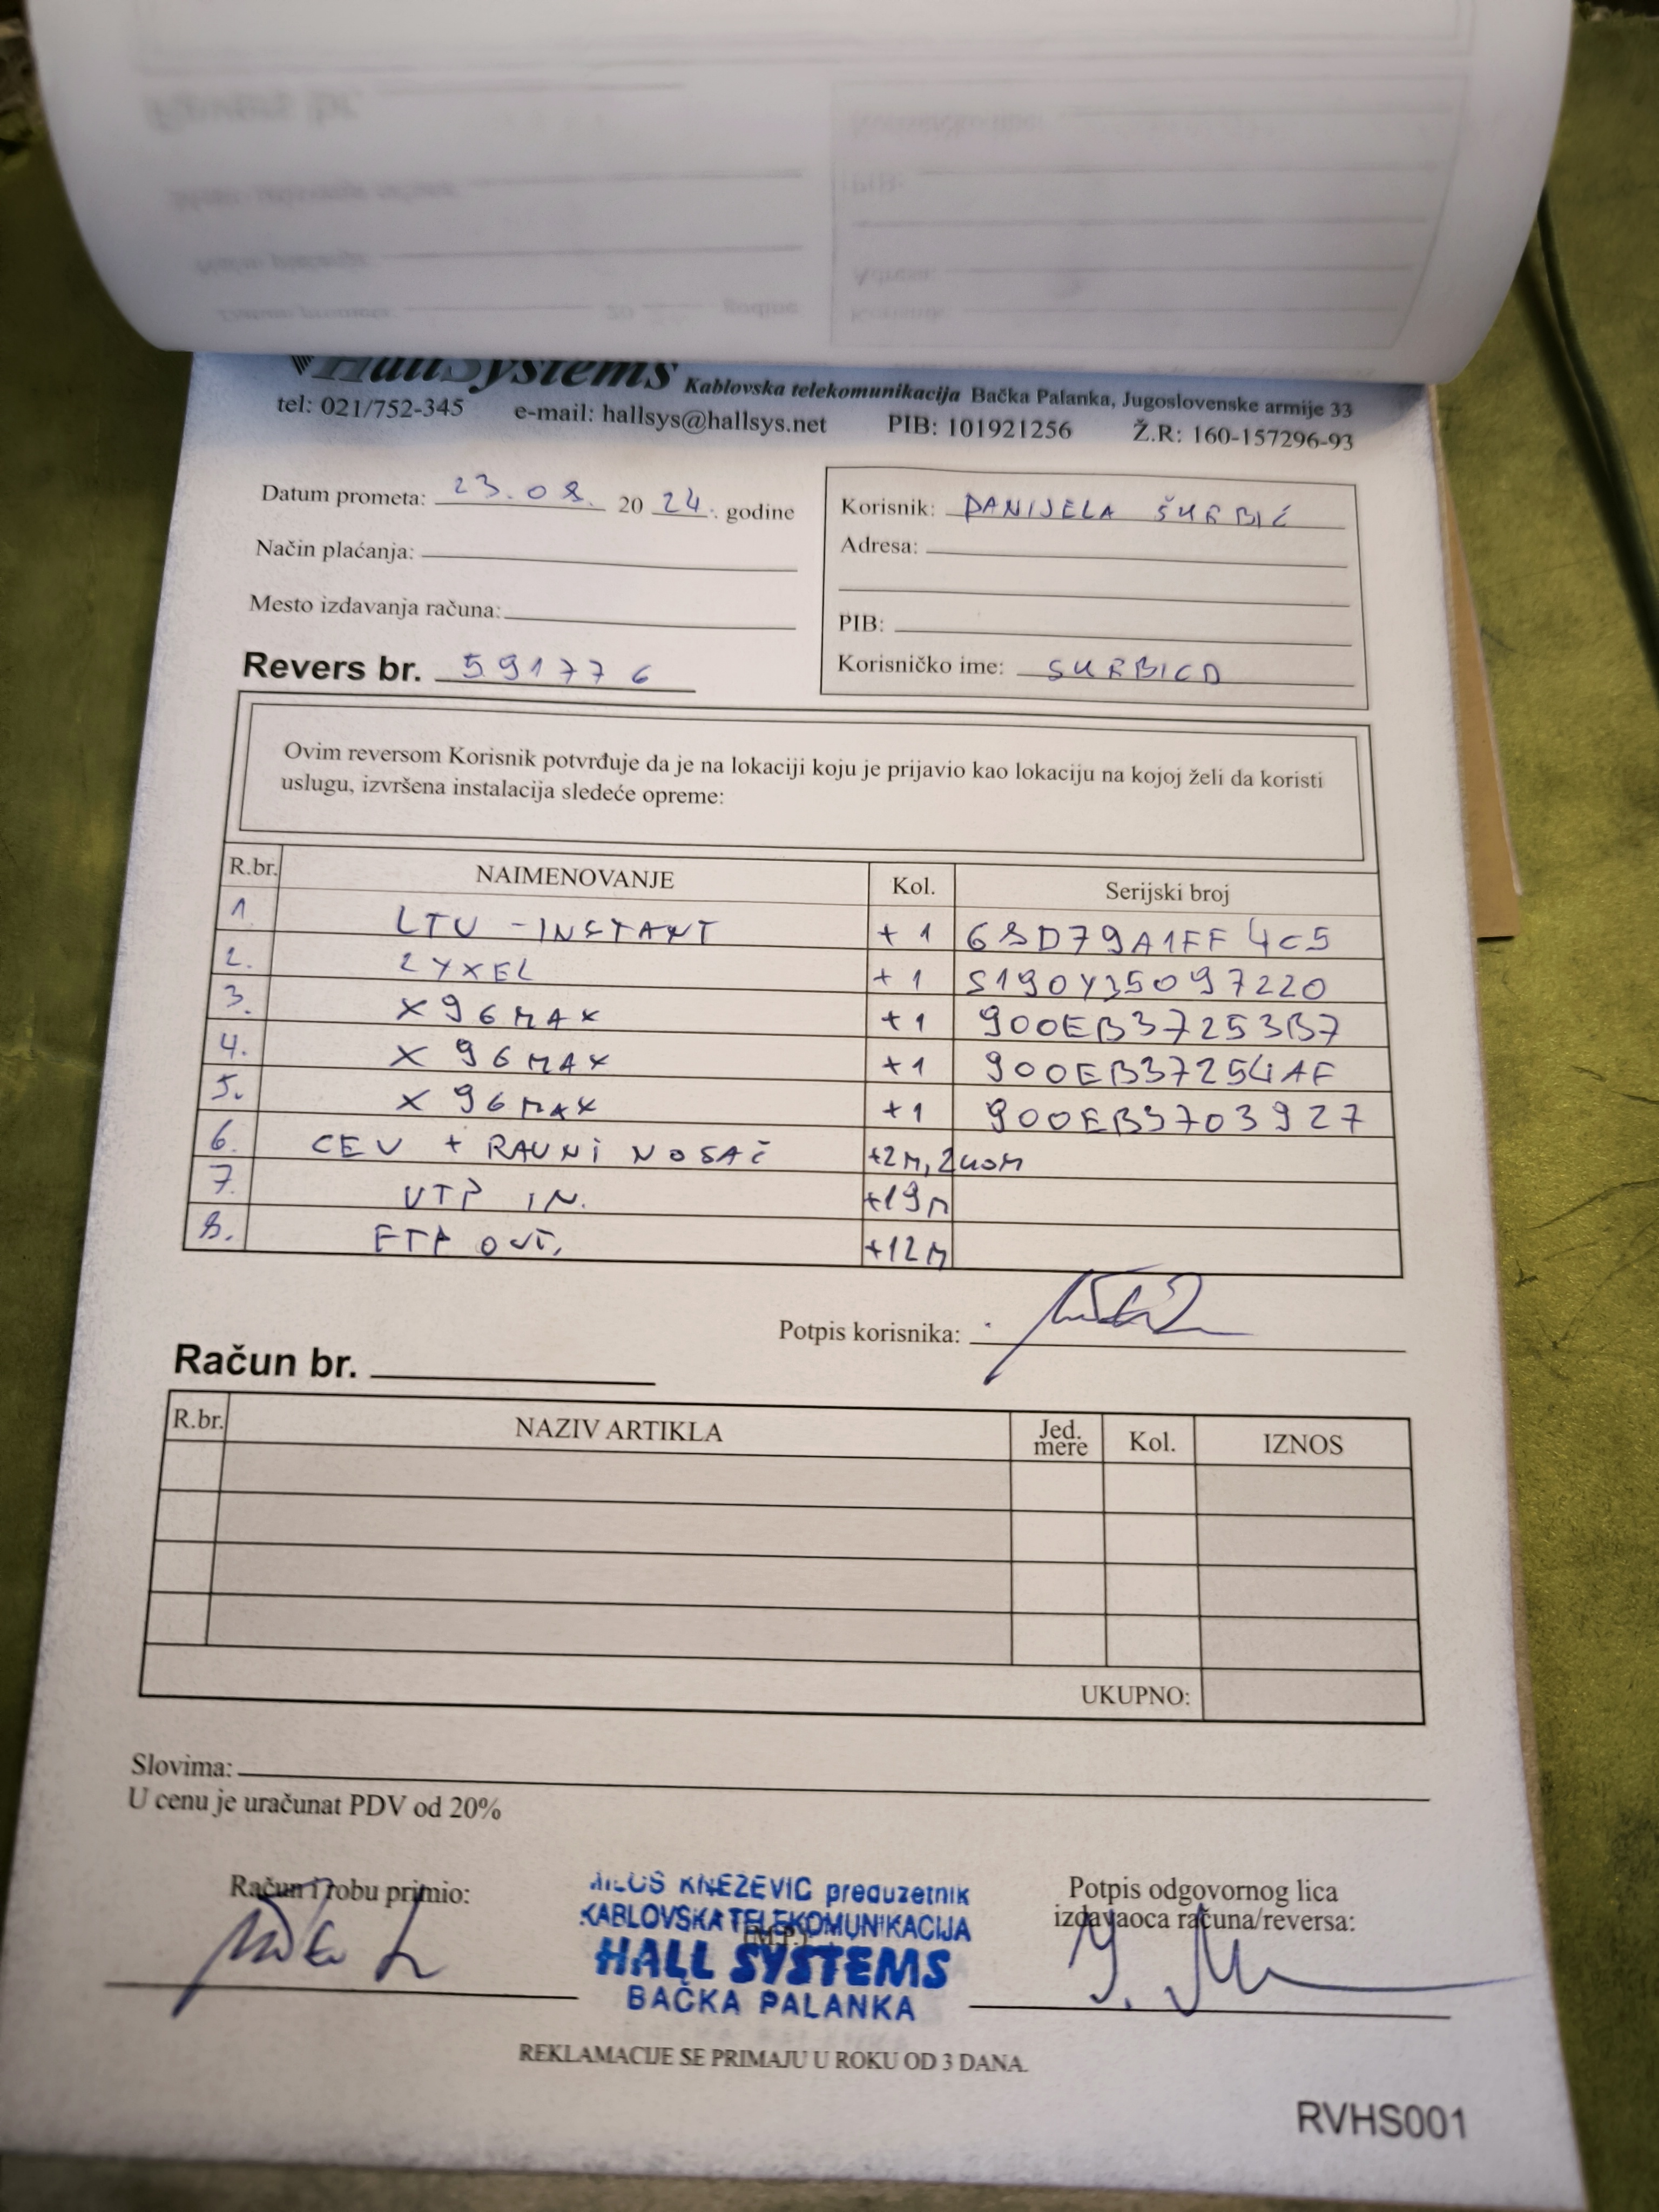 HallSystems Kablovska telekomunikacija Bačka Palanka, Jugoslovenske armije 33
tel: 021/752-345 e-mail: hallsys@hallsys.net PIB: 101921256 Ž.R: 160-157296-93
Datum prometa: 23.08. 20 24. godine
Način plaćanja:
Mesto izdavanja računa:
Revers br. 591776
Korisnik: DANIJELA ŠURBIĆ
Adresa:
PIB:
Korisničko ime: SURBICD
Ovim reversom Korisnik potvrđuje da je na lokaciji koju je prijavio kao lokaciju na kojoj želi da koristi
uslugu, izvršena instalacija sledeće opreme:
R.br. NAIMENOVANJE Kol. Serijski broj
1. LTU -INSTANT +1 68D79A1FF4C5
2. ZYXEL +1 S190Y35097220
3. X96MAX +1 900EB37253B7
4. X96MAX +1 900EB37254AF
5. X96MAX +1 900EB3703927
6. CEV + RAVNI NOSAČ +2M, 2KOM
7. UTP IN. +19M
8. FTP OUT. +12M
Potpis korisnika:
Račun br.
R.br. NAZIV ARTIKLA Jed. mere Kol. IZNOS
UKUPNO:
Slovima:
U cenu je uračunat PDV od 20%
Račun i robu primio:
MILOŠ KNEŽEVIĆ preduzetnik
KABLOVSKA TELEKOMUNIKACIJA
(M.P.)
HALL SYSTEMS
BAČKA PALANKA
Potpis odgovornog lica
izdavaoca računa/reversa:
REKLAMACIJE SE PRIMAJU U ROKU OD 3 DANA.
RVHS001